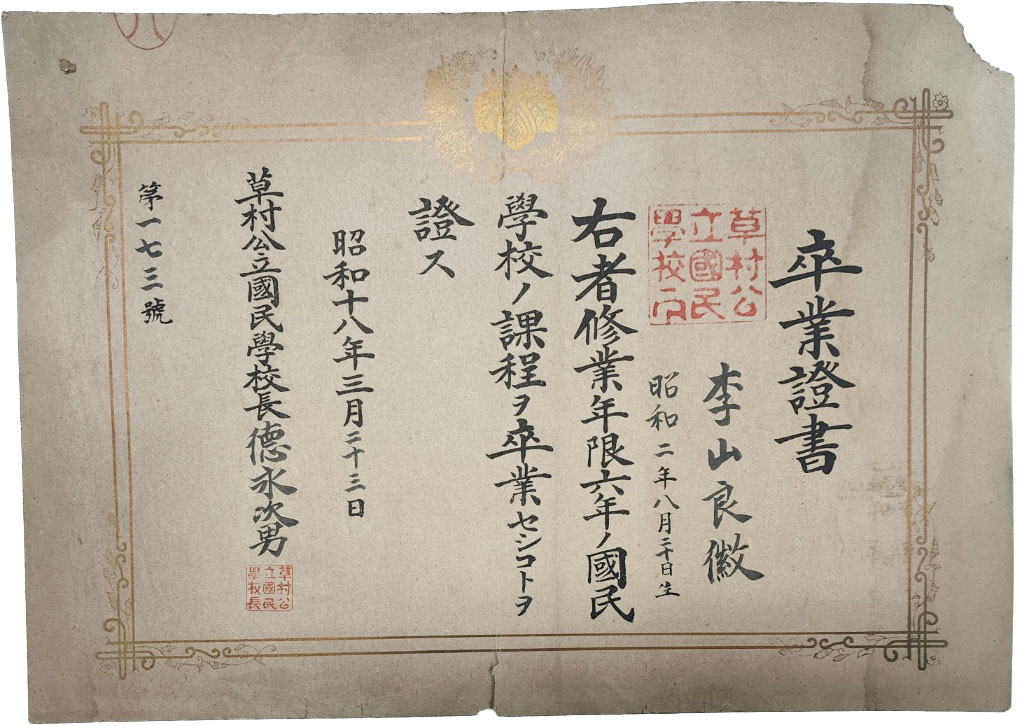 卒業證書
李山良徽
昭和二年八月二十日生
草村公
立國民
學校印
右者修業年限六年ノ國民
學校ノ課程ヲ卒業セシコトヲ
證ス
昭和十八年三月二十三日
草村公立國民學校長德永次男
草村公
立國民
學校長
第一七三號